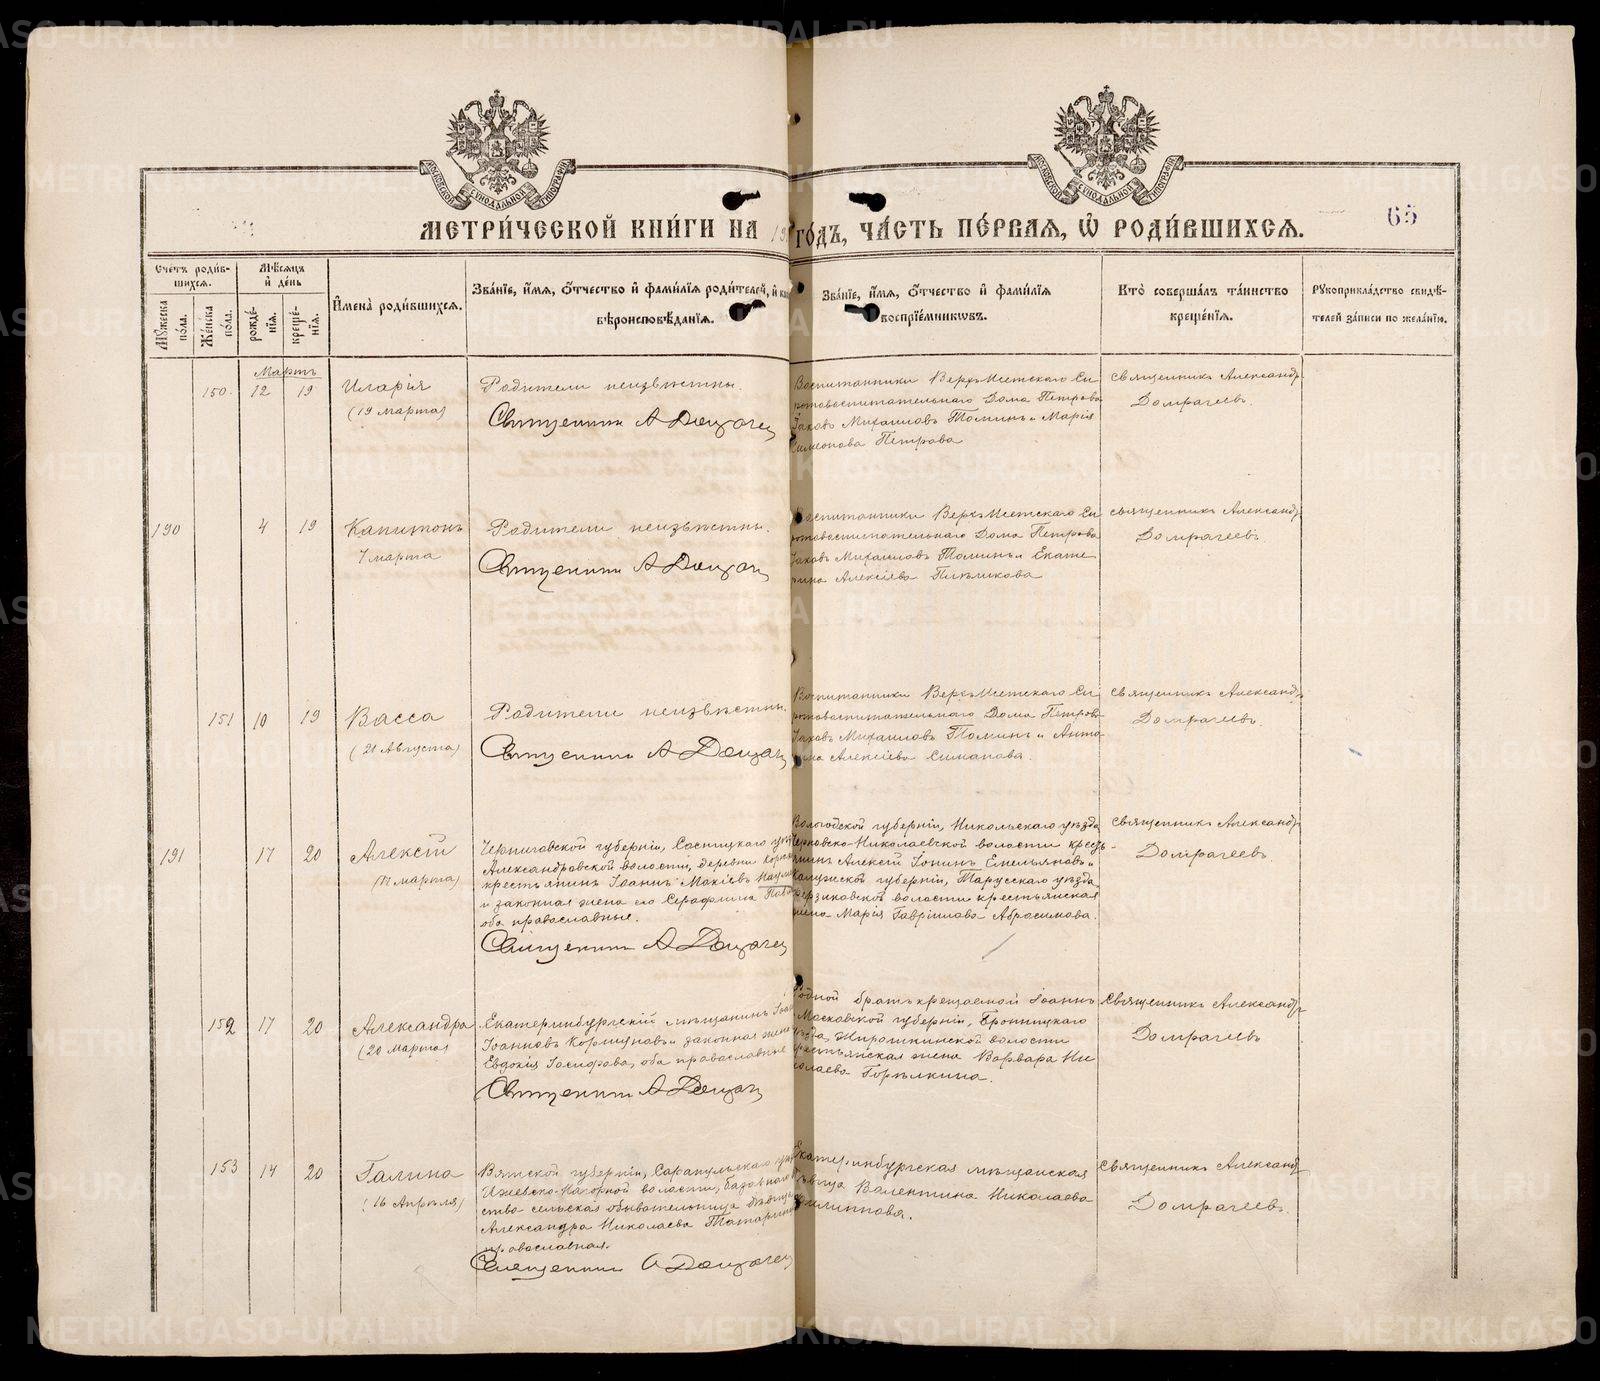 МЕТРИ́ЧЕСКОЙ КНИ́ГИ НА 19 ГО́ДЪ, ЧА́СТЬ ПЕ́РВАЯ, Ѡ҆ РОДИ́ВШИХСЯ.
65
Сче́тъ роди́вшихся.
Мѣ́сяцъ и҆ де́нь
Му́жеска по́ла.
Же́нска по́ла.
рожде́нїя.
креще́нїя.
И҆мена̀ роди́вшихся.
Зва́нїе, и҆́мя, о҆́тчество и҆ фами́лїя роди́телей, и҆
вѣроисповѣ́данїя.
Зва́нїе, и҆́мя, о҆́тчество и҆ фами́лїя
воспрїе́мниковъ.
Кто̀ соверша́лъ та́инство
креще́нїя.
Рукоприкла́дство свидѣ́-
телей за́писи по жела́нїю.
Мартъ
150. 12 19 Иларія
(19 марта)
Родители неизвѣстны.
Священникъ А Домрачеев
Воспитанники Верхъ-Исетскаго Си-
ротовоспитательнаго Дома Петрова
Іаковъ Михаиловъ Томинъ и Марія
Симеонова Петрова
Священникъ Александръ
Домрачеевъ.
190 4 19 Капитонъ
7 марта
Родители неизвѣстны.
Священникъ А Домрач
Воспитанники Верхъ-Исетскаго Си-
ротовоспитательнаго Дома Петрова
Іаковъ Михаиловъ Томинъ и Екате
рина Алексіева
Священникъ Александръ
Домрачеевъ.
151 10 19 Васса
(21 Августа)
Родители неизвѣстны.
Священникъ А Домрач
Воспитанники Верхъ-Исетскаго Си-
ротовоспитательнаго Дома Петрова
Іаковъ Михаиловъ Томинъ и Анто-
нина Алексіева Симанова.
Священникъ Александръ
Домрачеевъ.
191 17 20 Алексій
(17 марта)
Черниговской губерніи, Сосницкаго уѣз
Александровской волости, деревни
крестьянинъ Іоаннъ Мокіевъ Наум
и законная жена его Серафима Павл
оба православные.
Священникъ А Домрачеев
Вологодской губерніи, Никольскаго уѣзда
Николаевской волости кресть-
янинъ Алексій Іонинъ Емельяновъ и
Калужской губерніи, Тарусскаго уѣзда
волости крестьянская
жена Марія Гавріилова Абросимова.
Священникъ Александръ
Домрачеевъ
152 17 20 Александра
(20 Марта)
Екатеринбургскій мѣщанинъ Іоан
Іоанновъ Коршуновъ и законная жена
Евдокія Іосифова, оба православные
Священникъ А Домрач
Родной братъ крещаемой Іоаннъ и
Московской губерніи, Бронницкаго
уѣзда, Мирошкинской волости
крестьянская жена Варвара Ни-
колаева Горѣлкина.
Священникъ Александръ
Домрачеевъ
153 14 20 Галина
(16 Апрѣля)
Вятской губерніи, Сарапульскаго уѣз
Ижевско-Нагорной волости, базарнаго
ства сельская обывательница дѣвица
Александра Николаева Татаринова
православная.
Священникъ А Домрачеев
Екатеринбургская мѣщанская
дѣвица Валентина Николаева
Филиппова.
Священникъ Александръ
Домрачеевъ.
METRIKI.GASO-URAL.RU